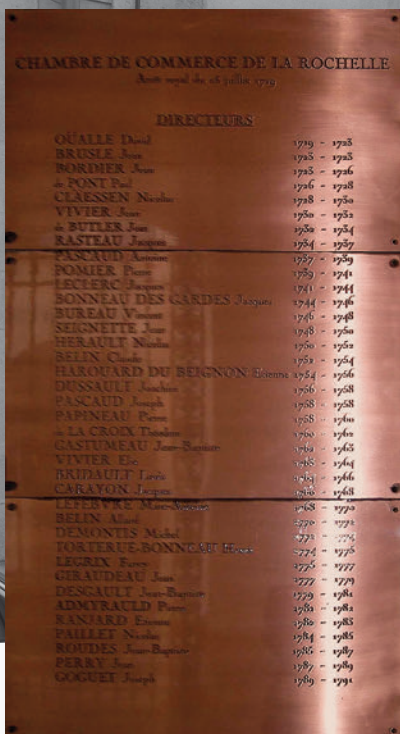 CHAMBRE DE COMMERCE DE LA ROCHELLE
Arrêt royal du 15 juillet 1719
DIRECTEURS
OÜALLE David 1719 - 1723
BRUSLE Jean 1723 - 1723
BORDIER Jean 1723 - 1726
de PONT Paul 1726 - 1728
CLAESSEN Nicolas 1728 - 1730
VIVIER Jean 1730 - 1732
de BUTLER Jean 1732 - 1734
RASTEAU Jacques 1734 - 1737
PASCAUD Antoine 1737 - 1739
POMIER Pierre 1739 - 1741
LECLERC Jacques 1741 - 1744
BONNEAU DES GARDES Jacques 1744 - 1746
BUREAU Vincent 1746 - 1748
SEIGNETTE Jean 1748 - 1750
HERAULT Nicolas 1750 - 1752
BELIN Claude 1752 - 1754
HAROUARD DU BEIGNON Etienne 1754 - 1756
DUSSAULT Joachim 1756 - 1758
PASCAUD Joseph 1758 - 1758
PAPINEAU Pierre 1758 - 1760
de LA CROIX Théodore 1760 - 1762
GASTUMEAU Jean-Baptiste 1762 - 1763
VIVIER Elie 1763 - 1764
BRIDAULT Louis 1764 - 1766
CARAYON Jacques 1766 - 1768
LEFEBVRE Marc-Antoine 1768 - 1770
BELIN Allard 1770 - 1772
DEMONTIS Michel 1772 - 1774
TORTERUE-BONNEAU 1774 - 1775
LEGRIX 1775 - 1777
GIRAUDEAU Jean 1777 - 1779
DESGAULT Jean-Baptiste 1779 - 1781
ADMYRAULD Pierre 1781 - 1782
RANJARD Etienne 1782 - 1783
PAILLET Nicolas 1784 - 1785
ROUDES Jean-Baptiste 1785 - 1787
PERRY Jean 1787 - 1789
GOGUET Joseph 1789 - 1791